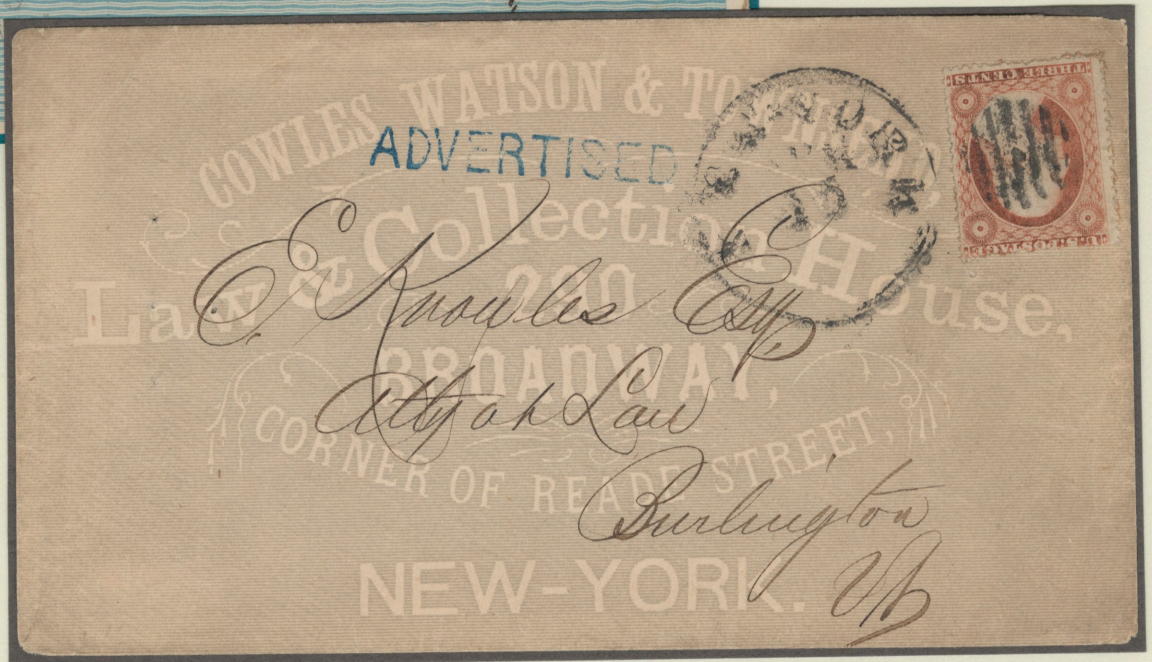 COWLES, WATSON &
ADVERTISED
Law & Collection House,
BROADWAY,
CORNER OF READE STREET,
NEW-YORK.
E. Knowles Esq.
Atty at Law
Burlington
Vt
THREE CENTS
U.S. POSTAGE